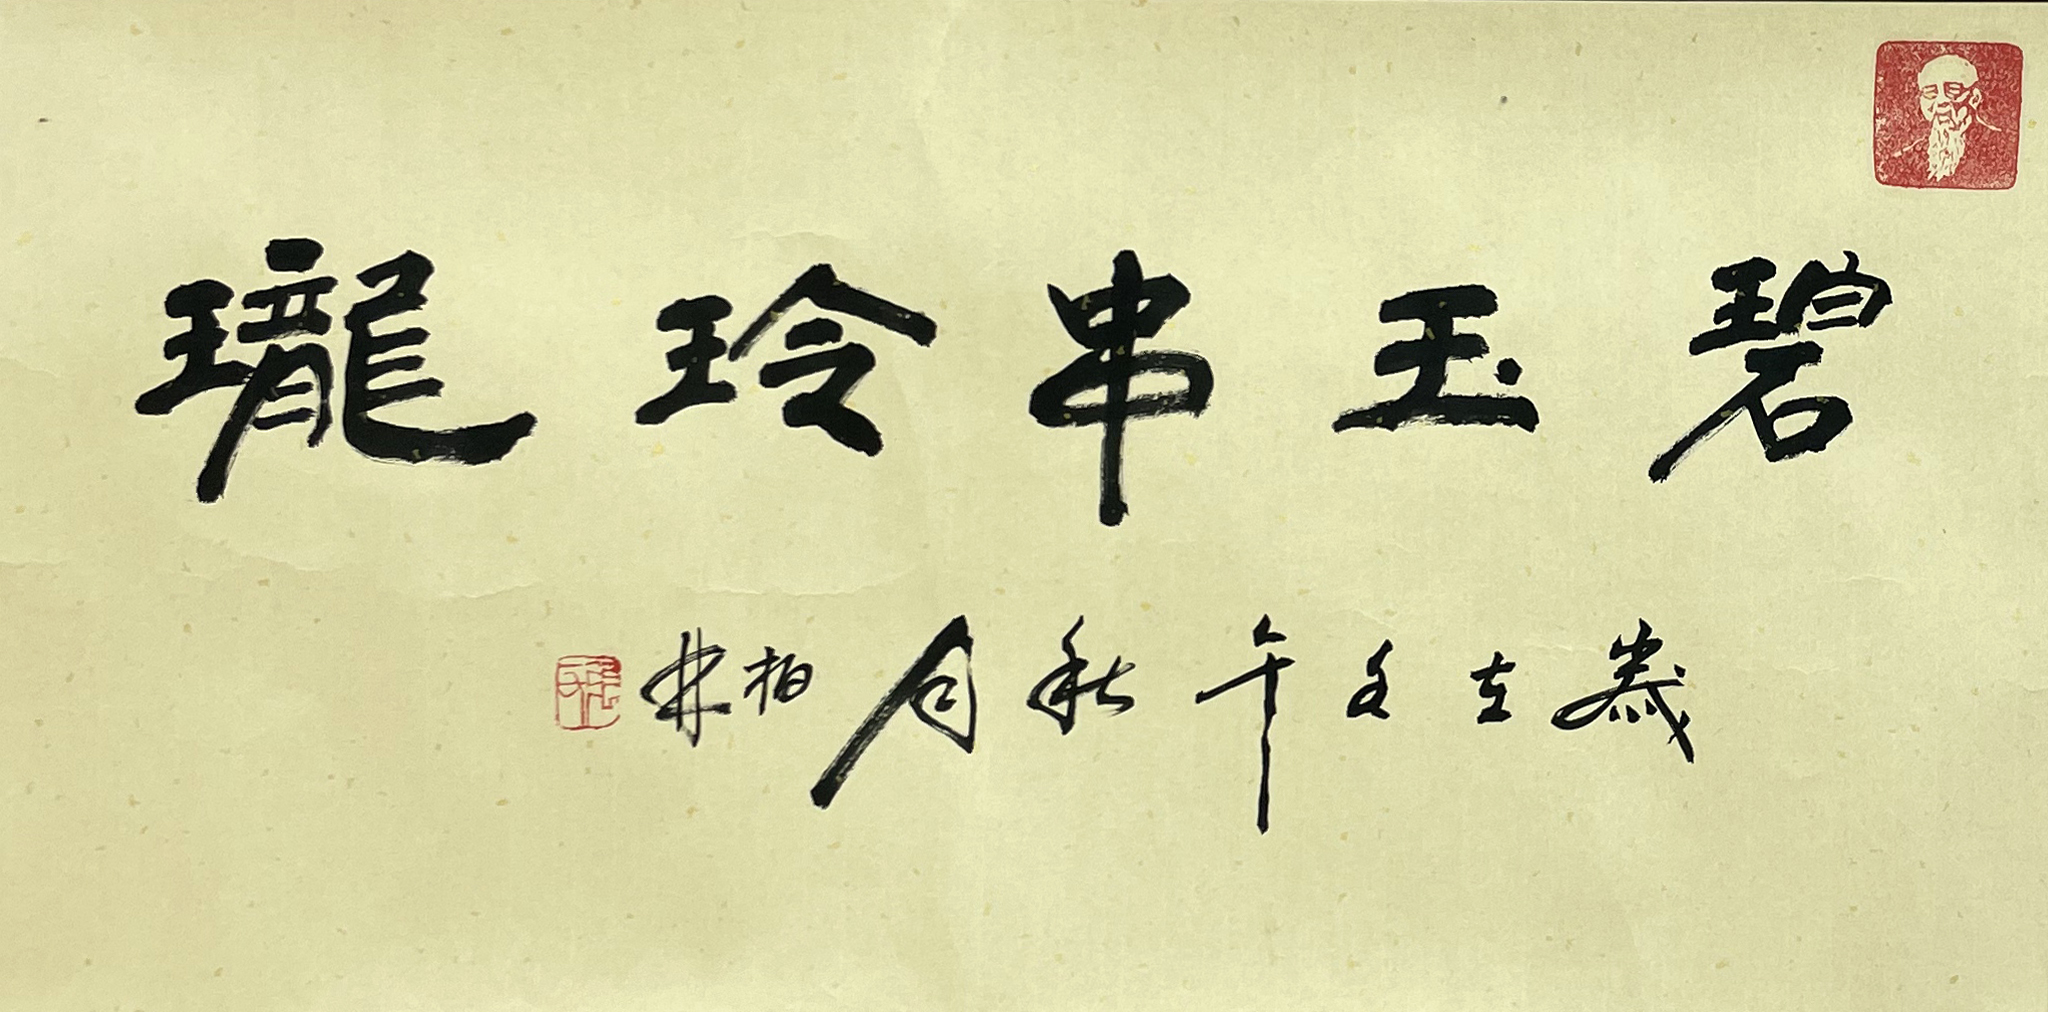 碧玉串玲瓏
歲在壬午秋月柏林